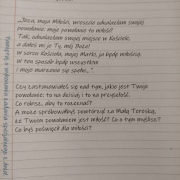 „Jezu, moja Miłości, wreszcie odnalazłam swoje
powołanie: moje powołanie to miłość!
Tak, odnalazłam swoje miejsce w Kościele,
a dałeś mi je Ty, mój Boże!
W sercu Kościoła, mojej Matki, ja będę miłością.
W ten sposób będę wszystkim
i moje marzenie się spełni..."
Czy zastanawiałeś się nad tym, jakie jest Twoje
powołanie: to na dzisiaj i to na przyszłość.
Co robisz, aby to rozeznać?
A może spróbowałbyś powtórzyć za Małą Tereską,
że Twoim powołaniem jest miłość? Co o tym myślisz?
Co byś poświęcił dla miłości?